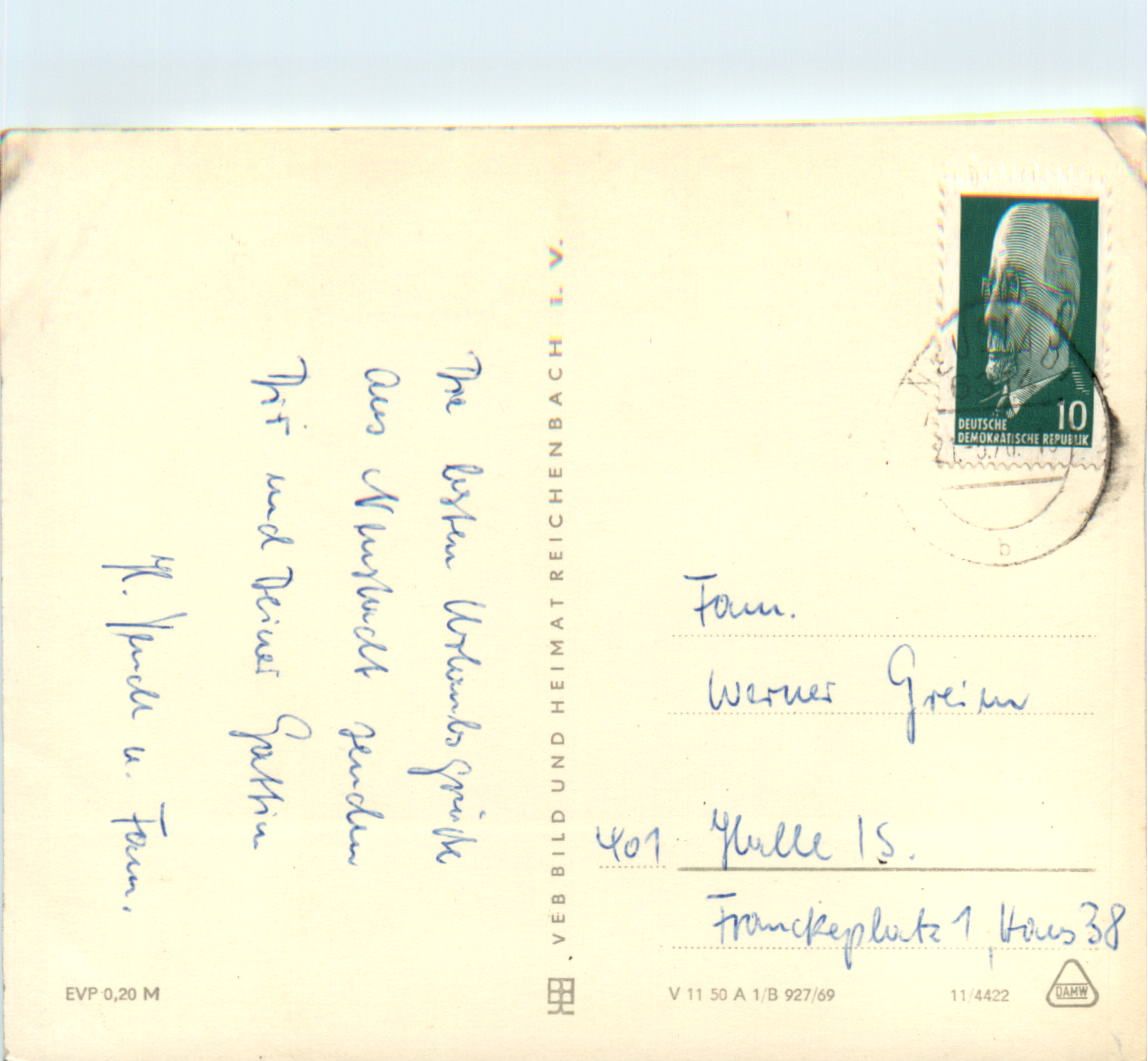 Die besten Urlaubsgrüße
aus Neustadt senden
Dir und Deiner Gattin
u. Fam.
VEB BILD UND HEIMAT REICHENBACH i. V.
10
DEUTSCHE
DEMOKRATISCHE REPUBLIK
b
Fam.
Werner Greim
401 Halle / S.
Franckeplatz 1, Haus 38
EVP 0,20 M
V 11 50 A 1/B 927/69
11/4422
DAMW